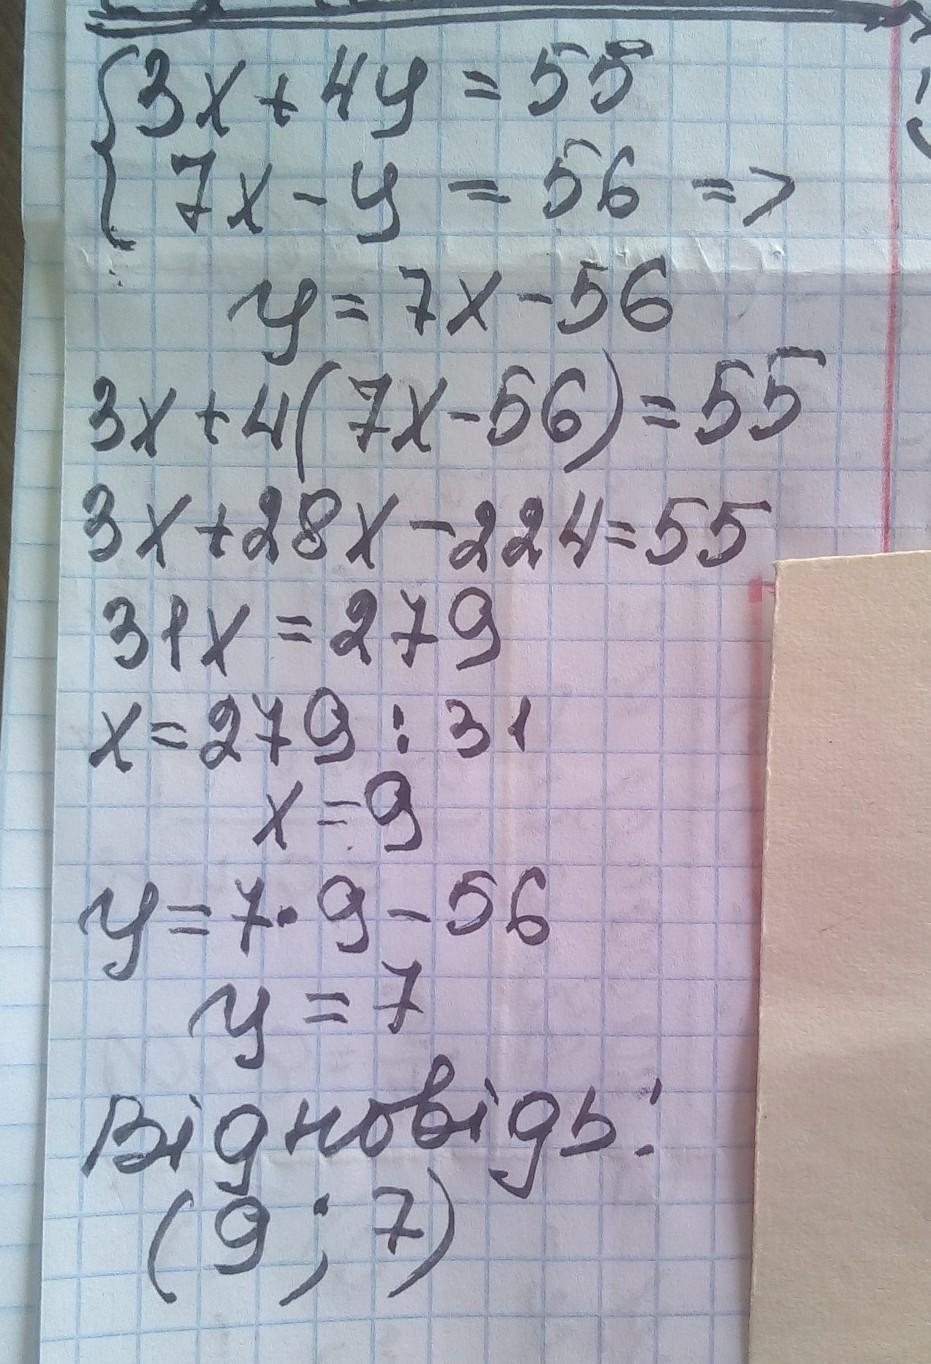 {3x+4y=55
7x-y=56 =>
y=7x-56
3x+4(7x-56)=55
3x+28x-224=55
31x=279
x=279:31
x=9
y=7·9-56
y=7
Відповідь:
(9;7)